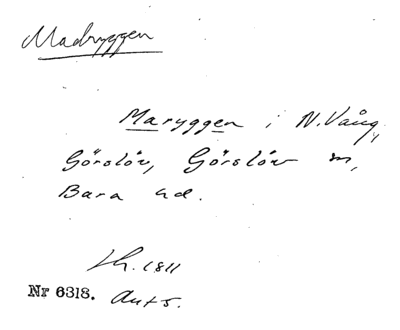 Madryggen
Maryggen i N. Vång,
Görslöv, Görslöv sn,
Bara hd.
Lh. 1811
Nr 6318. Ant 5.